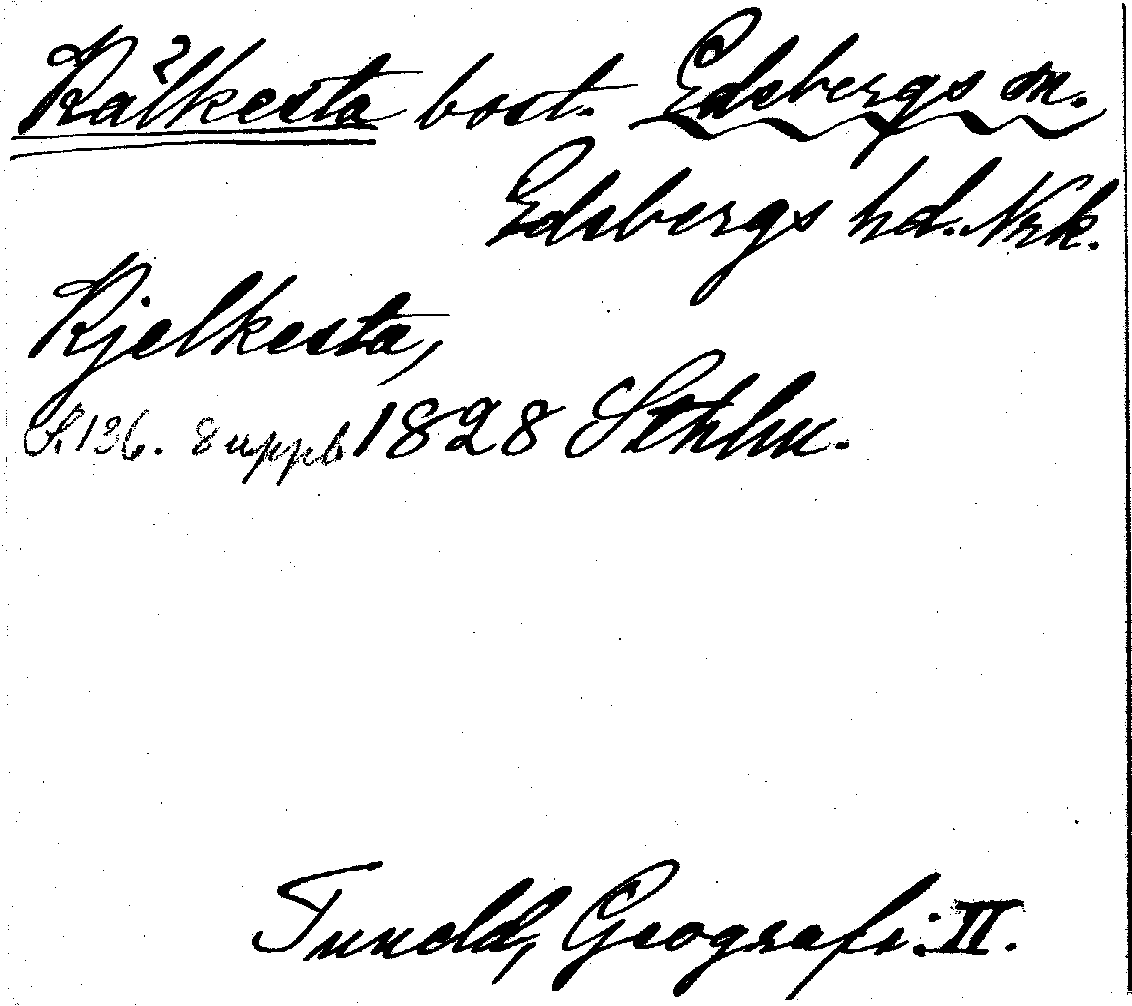 Kälkesta bost. Edsbergs sn.
Edsbergs hd. Nrk.
Kjelkesta,
S. 136. 8 uppl 1828 Sthlm.
Tuneld, Geografi. II.